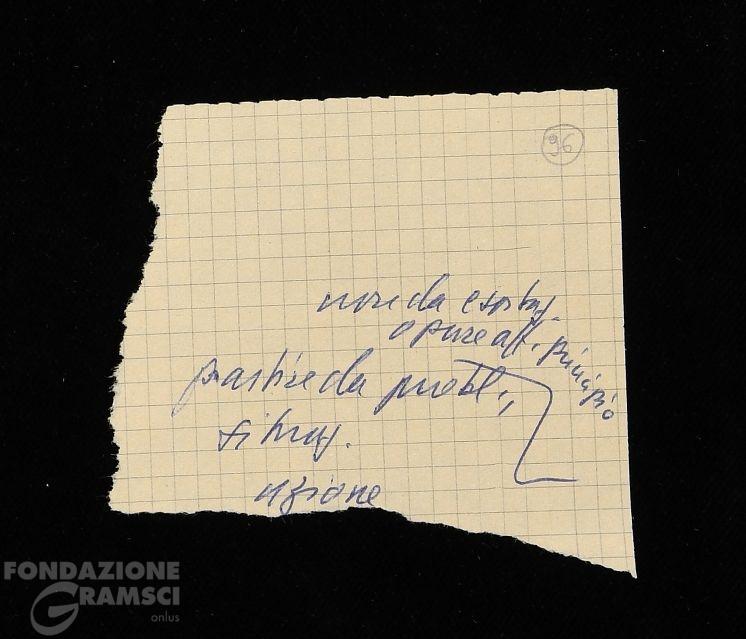 96
non da esortaz.
o pure aff. principio
partire da probl.,
situaz.
azione
FONDAZIONE
GRAMSCI
onlus